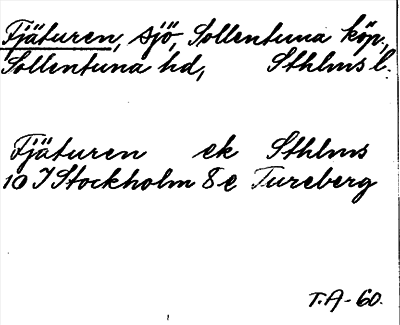 Fjäturen, sjö, Sollentuna köp,
Sollentuna hd, Sthlms l.
Fjäturen ek Sthlms
10 I Stockholm 8 e Tureberg
T.A-60.